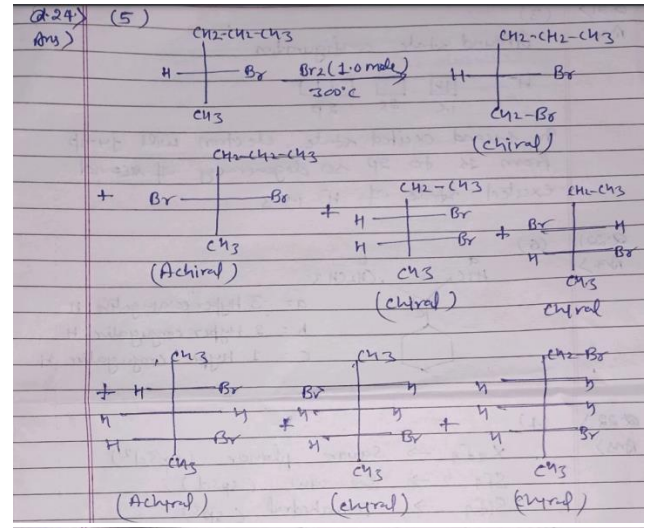 Q.24) (5)
Ans)
CH2-CH2-CH3
H Br
CH3
Br2 (1.0 mole)
300°C
CH2-CH2-CH3
H Br
CH2-Br
(chiral)
+
CH2-CH2-CH3
Br Br
CH3
(Achiral)
+
CH2-CH3
H Br
H Br
CH3
(chiral)
+
CH2-CH3
Br H
H Br
CH3
chiral
+
CH3
H Br
H H
H Br
CH3
(Achiral)
+
CH3
Br H
H H
H Br
CH3
(chiral)
+
CH2-Br
H H
H H
H Br
CH3
(chiral)